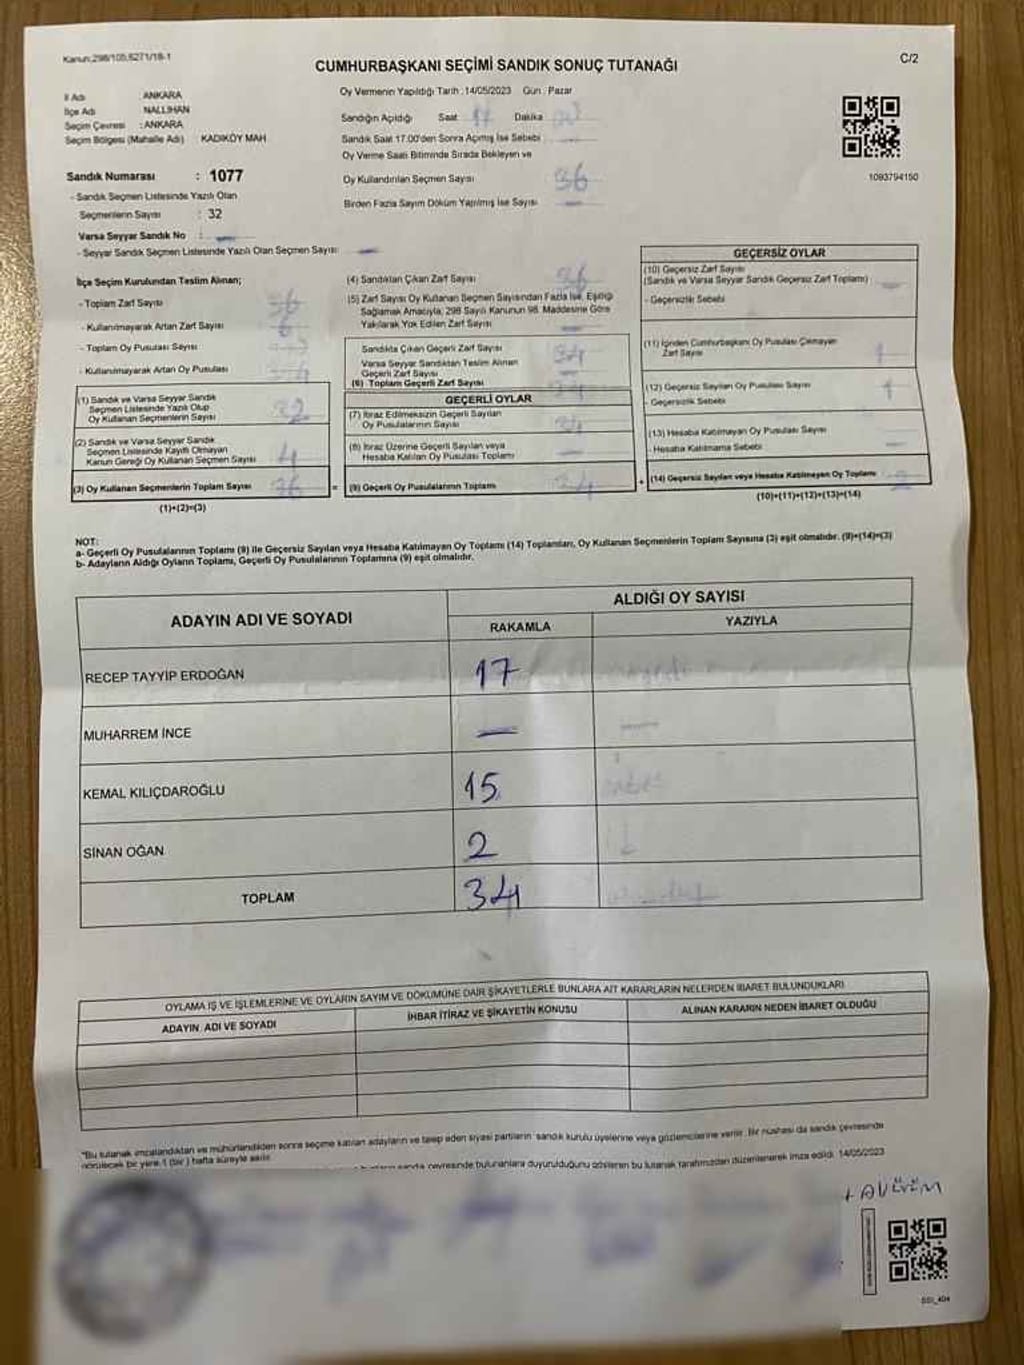 Kanun:298/105,6271/18-1
C/2
CUMHURBAŞKANI SEÇİMİ SANDIK SONUÇ TUTANAĞI
İl Adı : ANKARA
İlçe Adı NALLIHAN
Seçim Çevresi : ANKARA
Seçim Bölgesi (Mahalle Adı) KADIKÖY MAH.
Sandık Numarası : 1077
- Sandık Seçmen Listesinde Yazılı Olan
Seçmenlerin Sayısı : 32
Varsa Seyyar Sandık No :
- Seyyar Sandık Seçmen Listesinde Yazılı Olan Seçmen Sayısı:
Oy Vermenin Yapıldığı Tarih :14/05/2023 Gün : Pazar
Sandığın Açıldığı Saat 17 Dakika
Sandık Saat 17.00'den Sonra Açımış İse Sebebi
Oy Verme Saati Bitiminde Sırada Bekleyen ve
Oy Kullandırılan Seçmen Sayısı 36
Birden Fazla Sayım Döküm Yapılmış İse Sayısı
1093794150
İlçe Seçim Kurulundan Teslim Alınan;
- Toplam Zarf Sayısı
- Kullanılmayarak Artan Zarf Sayısı 6
- Toplam Oy Pusulası Sayısı
- Kullanılmayarak Artan Oy Pusulası
(1) Sandık ve Varsa Seyyar Sandık
Seçmen Listesinde Yazılı Olup
Oy Kullanan Seçmenlerin Sayısı 32
(2) Sandık ve Varsa Seyyar Sandık
Seçmen Listesinde Kaydı Olmayan
Kanun Gereği Oy Kullanan Seçmen Sayısı 4
(3) Oy Kullanan Seçmenlerin Toplam Sayısı 36
(1)+(2)=(3)
=
(4) Sandıktan Çıkan Zarf Sayısı 36
(5) Zarf Sayısı Oy Kullanan Seçmen Sayısından Fazla İse, Eşitliği
Sağlamak Amacıyla, 298 Sayılı Kanunun 98. Maddesine Göre
Yakılarak Yok Edilen Zarf Sayısı
Sandıkta Çıkan Geçerli Zarf Sayısı 34
Varsa Seyyar Sandıktan Teslim Alınan
Geçerli Zarf Sayısı
(6) Toplam Geçerli Zarf Sayısı 34
GEÇERLİ OYLAR
(7) İtiraz Edilmeksizin Geçerli Sayılan
Oy Pusulalarının Sayısı 34
(8) İtiraz Üzerine Geçerli Sayılan veya
Hesaba Katılan Oy Pusulası Toplamı
(9) Geçerli Oy Pusulalarının Toplamı 34
+
GEÇERSİZ OYLAR
(10) Geçersiz Zarf Sayısı
(Sandık ve Varsa Seyyar Sandık Geçersiz Zarf Toplamı)
- Geçersizlik Sebebi
(11) İçinden Cumhurbaşkanı Oy Pusulası Çıkmayan
Zarf Sayısı 1
(12) Geçersiz Sayılan Oy Pusulası Sayısı 1
- Geçersizlik Sebebi
(13) Hesaba Katılmayan Oy Pusulası Sayısı
- Hesaba Katılmama Sebebi
(14) Geçersiz Sayılan veya Hesaba Katılmayan Oy Toplamı 2
(10)+(11)+(12)+(13)=(14)
NOT:
a- Geçerli Oy Pusulalarının Toplamı (9) ile Geçersiz Sayılan veya Hesaba Katılmayan Oy Toplamı (14) Toplamları, Oy Kullanan Seçmenlerin Toplam Sayısına (3) eşit olmalıdır. (9)+(14)=(3)
b- Adayların Aldığı Oyların Toplamı, Geçerli Oy Pusulalarının Toplamına (9) eşit olmalıdır.
ADAYIN ADI VE SOYADI
ALDIĞI OY SAYISI
RAKAMLA YAZIYLA
RECEP TAYYİP ERDOĞAN 17
MUHARREM İNCE —
KEMAL KILIÇDAROĞLU 15
SİNAN OĞAN 2
TOPLAM 34
OYLAMA İŞ VE İŞLEMLERİNE VE OYLARIN SAYIM VE DÖKÜMÜNE DAİR ŞİKAYETLERLE BUNLARA AİT KARARLARIN NELERDEN İBARET BULUNDUKLARI
ADAYIN ADI VE SOYADI İHBAR İTİRAZ VE ŞİKAYETİN KONUSU ALINAN KARARIN NEDEN İBARET OLDUĞU
*Bu tutanak imzalandıktan ve mühürlendikten sonra seçime katılan adayların ve talep eden siyasi partilerin sandık kurulu üyelerine veya gözlemcilerine verilir. Bir nüshası da sandık çevresinde
görülecek bir yere 1 (bir) hafta süreyle asılır.
sandık çevresinde bulunanlara duyurulduğunu gösteren bu tutanak tarafımızdan düzenlenerek imza edildi. 14/05/2023